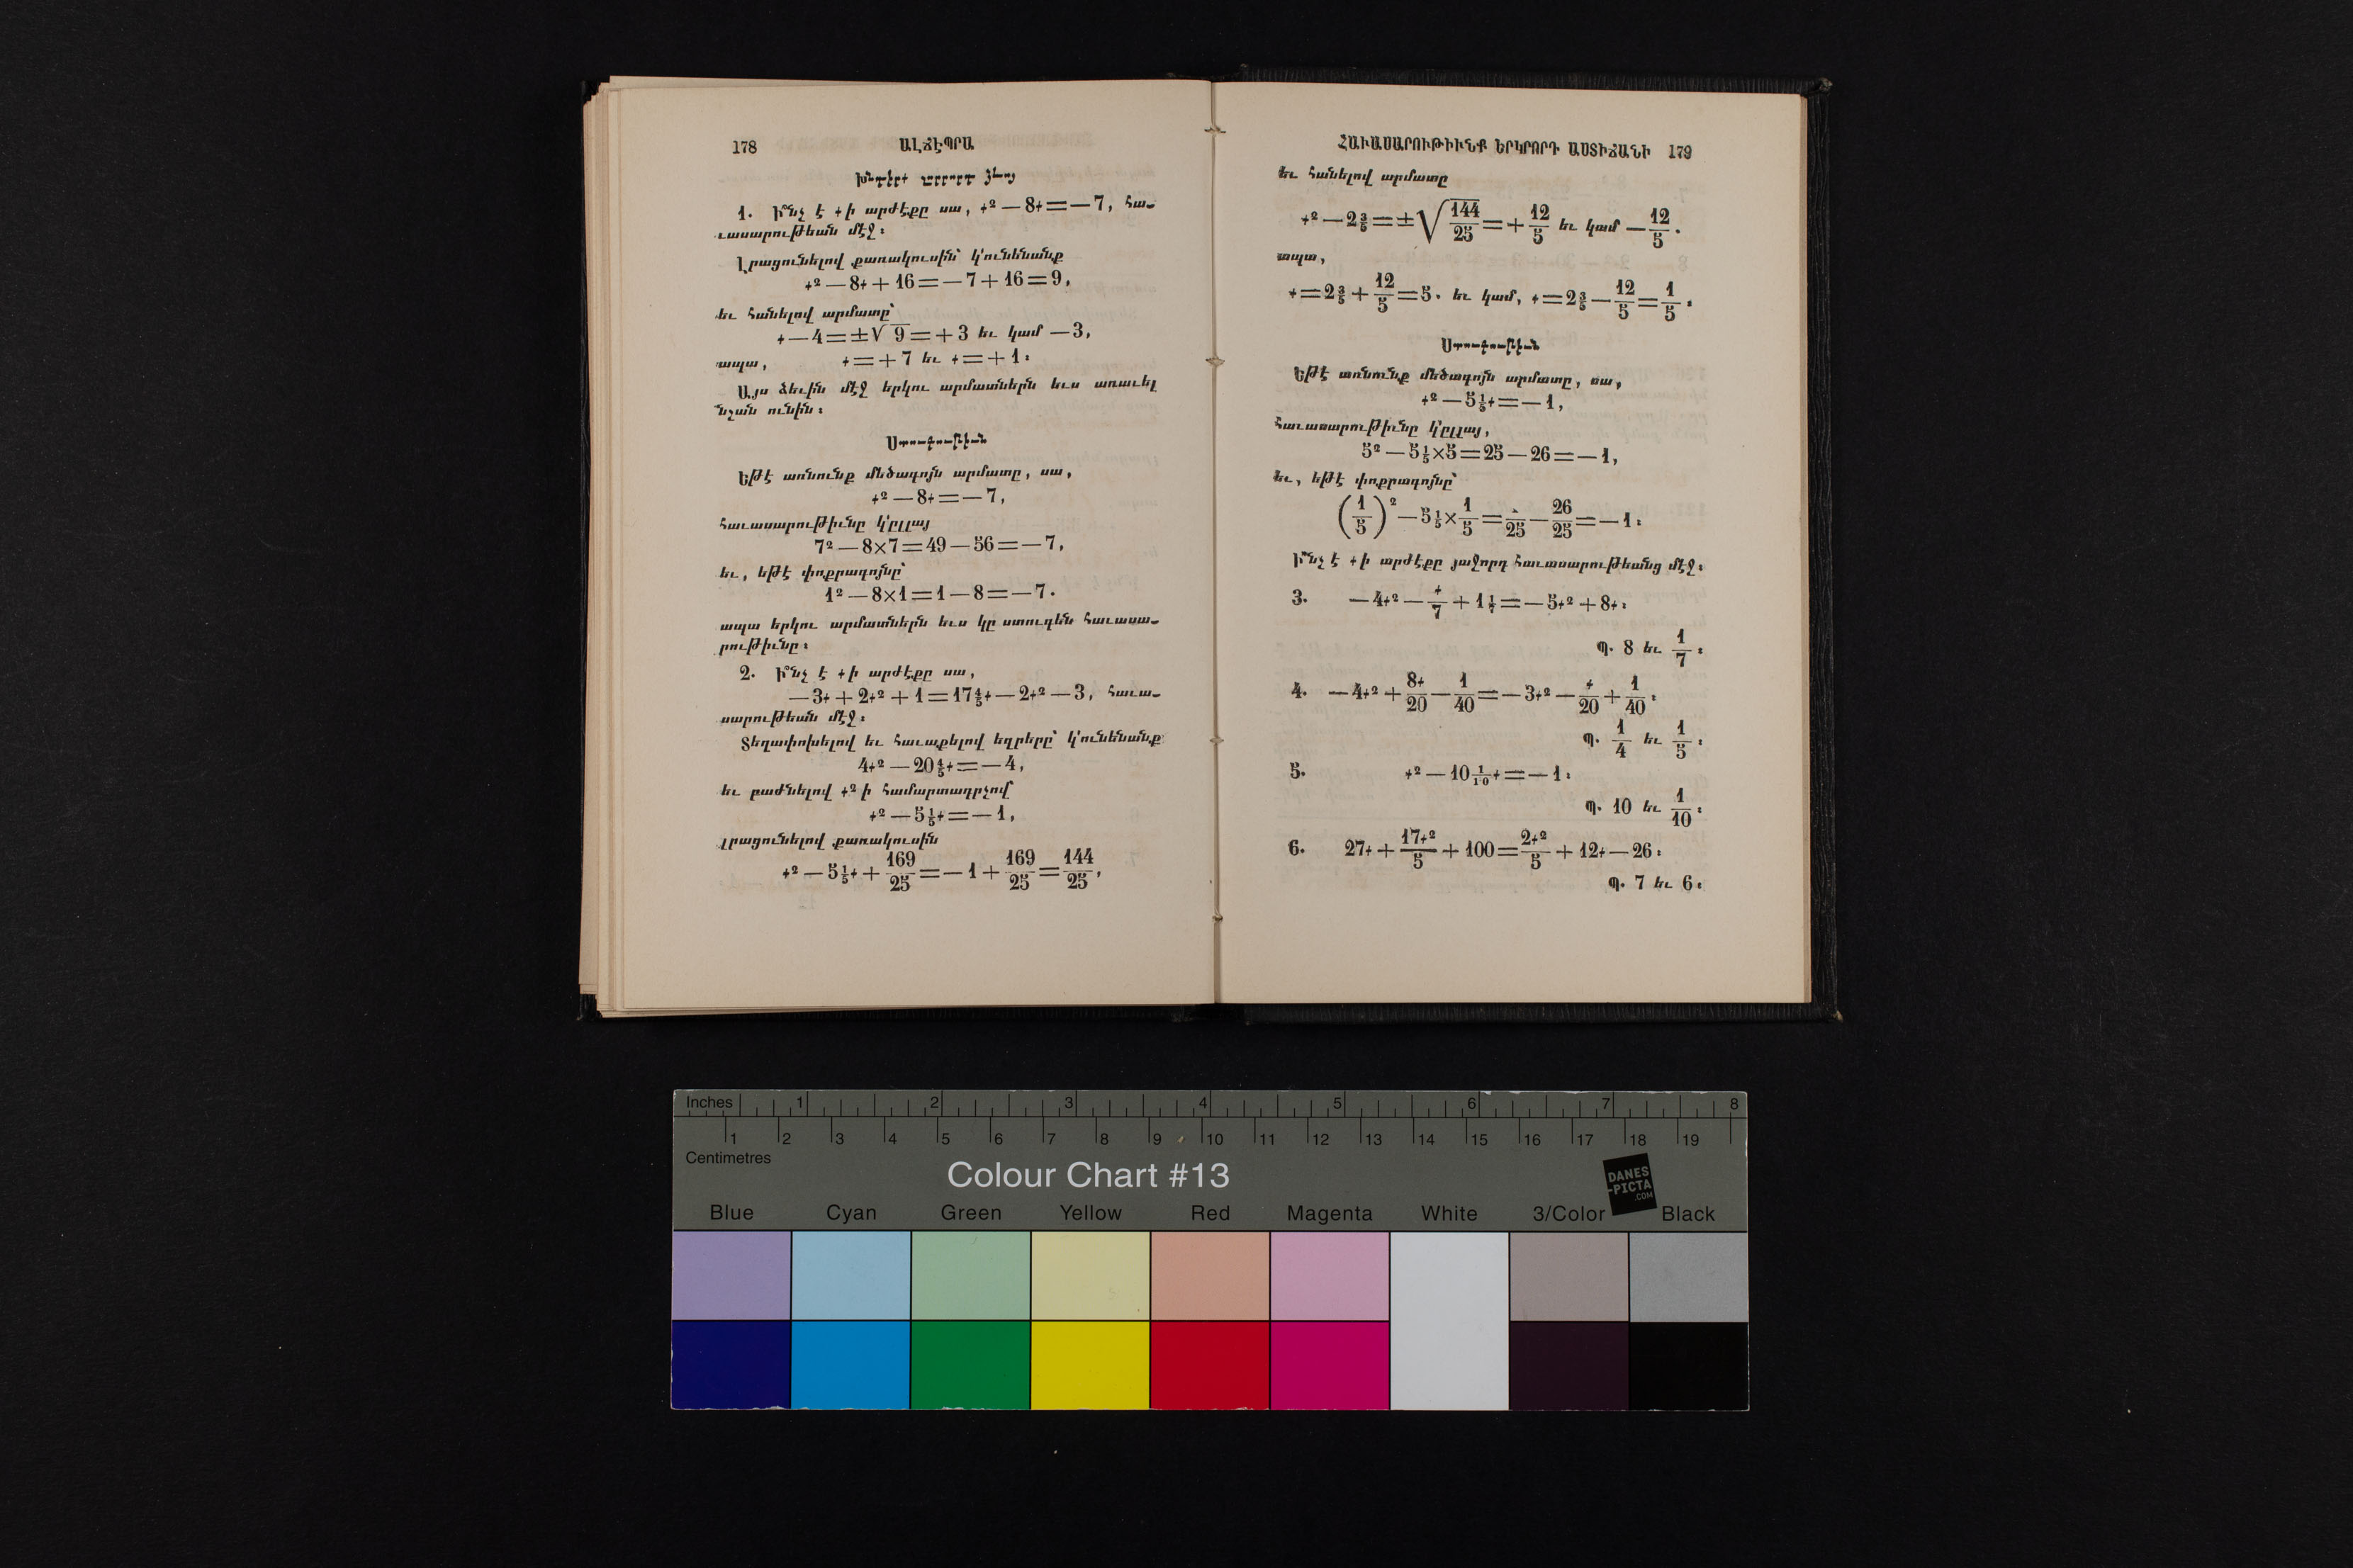 178 ԱԼՃԷՊՐԱ
Խնդիրք չորրորդ ձեւոյ
1. Ի՞նչ է ք ի արժէքը սա, ք² — 8ք = — 7, հա-
ւասարութեան մէջ։
Լրացունելով քառակուսին՝ կ՚ունենանք
ք² — 8ք + 16 = — 7 + 16 = 9,
եւ հանելով արմատը՝
ք — 4 = ± √9 = + 3 եւ կամ — 3,
ապա, ք = + 7 եւ ք = + 1։
Այս ձեւին մէջ երկու արմատներն եւս առաւել
նշան ունին։
Ստուգութիւն
Եթէ առնունք մեծագոյն արմատը, սա,
ք² — 8ք = — 7,
հաւասարութիւնը կ՚ըլլայ
7² — 8×7 = 49 — 56 = — 7,
եւ, եթէ փոքրագոյնը՝
1² — 8×1 = 1 — 8 = — 7.
ապա երկու արմատներն եւս կը ստուգեն հաւասա-
րութիւնը։
2. Ի՞նչ է ք ի արժէքը սա,
— 3ք + 2ք² + 1 = 17⅘ք — 2ք² — 3, հաւա-
սարութեան մէջ։
Տեղափոխելով եւ հաւաքելով եզրերը՝ կ՚ունենանք
4ք² — 20⅘ք = — 4,
եւ բաժնելով ք² ի համարտադրչով
ք² — 5⅕ք = — 1,
լրացունելով քառակուսին
ք² — 5⅕ք + 169/25 = — 1 + 169/25 = 144/25,
ՀԱՒԱՍԱՐՈՒԹԻՒՆՔ ԵՐԿՐՈՐԴ ԱՍՏԻՃԱՆԻ 179
եւ հանելով արմատը
ք² — 2⅗ = ± √144/25 = + 12/5 եւ կամ — 12/5.
ապա,
ք = 2⅗ + 12/5 = 5. եւ կամ, ք = 2⅗ — 12/5 = 1/5։
Ստուգութիւն
Եթէ առնունք մեծագոյն արմատը, սա,
ք² — 5⅕ք = — 1,
հաւասարութիւնը կ՚ըլլայ,
5² — 5⅕×5 = 25 — 26 = — 1,
եւ, եթէ փոքրագոյնը՝
(1/5)² — 5⅕×1/5 = 1/25 — 26/25 = — 1։
Ի՞նչ է ք ի արժէքը յաջորդ հաւասարութեանց մէջ։
3. — 4ք² — ք/7 + 1 1/7 = — 5ք² + 8ք։
Պ. 8 եւ 1/7։
4. — 4ք² + 8ք/20 — 1/40 = — 3ք² — ք/20 + 1/40։
Պ. 1/4 եւ 1/5։
5. ք² — 10 1/10 ք = — 1։
Պ. 10 եւ 1/10։
6. 27ք + 17ք²/5 + 100 = 2ք²/5 + 12ք — 26։
Պ. 7 եւ 6։
Inches 1 2 3 4 5 6 7 8
1 2 3 4 5 6 7 8 9 10 11 12 13 14 15 16 17 18 19
Centimetres
Colour Chart #13
DANES
-PICTA
.COM
Blue Cyan Green Yellow Red Magenta White 3/Color Black